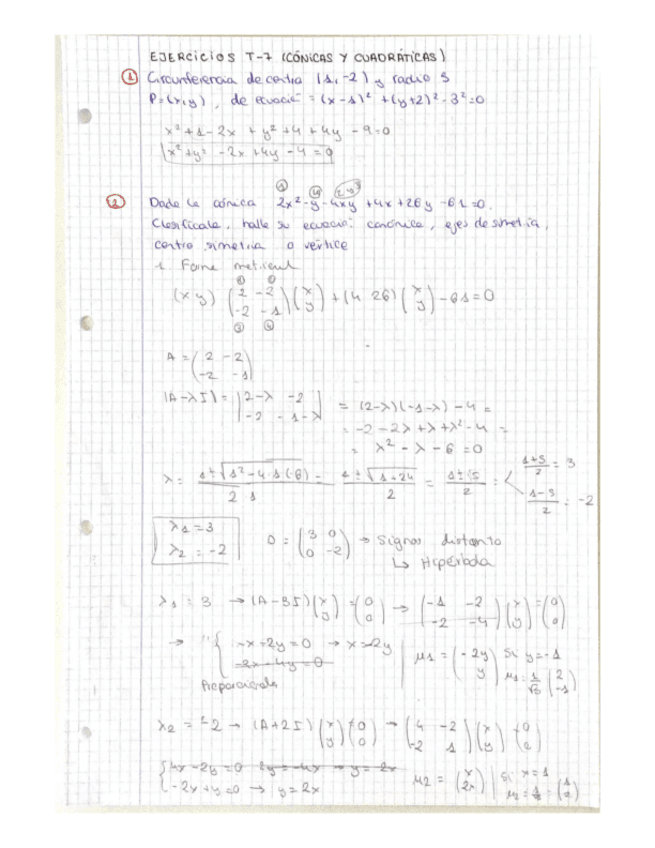 EJERCICIOS T-7 (CÓNICAS Y CUADRÁTICAS)
① Circunferencia de centro (1,-2) y radio 3
P=(x,y), de ecuació = (x-1)² + (y+2)² - 3² = 0
x² + 1 - 2x + y² + 4 + 4y - 9 = 0
x² + y² - 2x + 4y - 4 = 0
② Dada la cónica 2x² - y² - 4xy + 4x + 26y - 61 = 0.
Clasifícala, halle su ecuació canónica, ejes de simetría,
centro simetria o vértice
1. Forma matricial
(x y) (2 -2 / -2 -1) (x / y) + (4 26) (x / y) - 61 = 0
A = (2 -2 / -2 -1)
|A-λI| = |2-λ -2 / -2 -1-λ| = (2-λ)(-1-λ) - 4 =
= -2 - 2λ + λ + λ² - 4 =
= λ² - λ - 6 = 0
λ = 1 ± √(1² - 4·1·(-6)) / 2·1 = 1 ± √(1+24) / 2 = 1 ± 5 / 2 = < 1+5 / 2 = 3
1-5 / 2 = -2
λ₁ = 3
λ₂ = -2
D = (3 0 / 0 -2) → Signos distinto
↳ Hipérbola
λ₁ = 3 → (A-3I) (x / y) = (0 / 0) → (-1 -2 / -2 -4) (x / y) = (0 / 0)
→ { -x + 2y = 0 → x = 2y
-2x - 4y = 0
Proporcionals
μ₁ = (-2y / y) | si y = -1
μ₁ = 1/√5 (2 / -1)
λ₂ = -2 → (A+2I) (x / y) = (0 / 0) → (4 -2 / -2 1) (x / y) = (0 / 0)
{ 4x - 2y = 0 2y = -4x → y = 2x
-2x + y = 0 → y = 2x
μ₂ = (x / 2x) | si x = 1